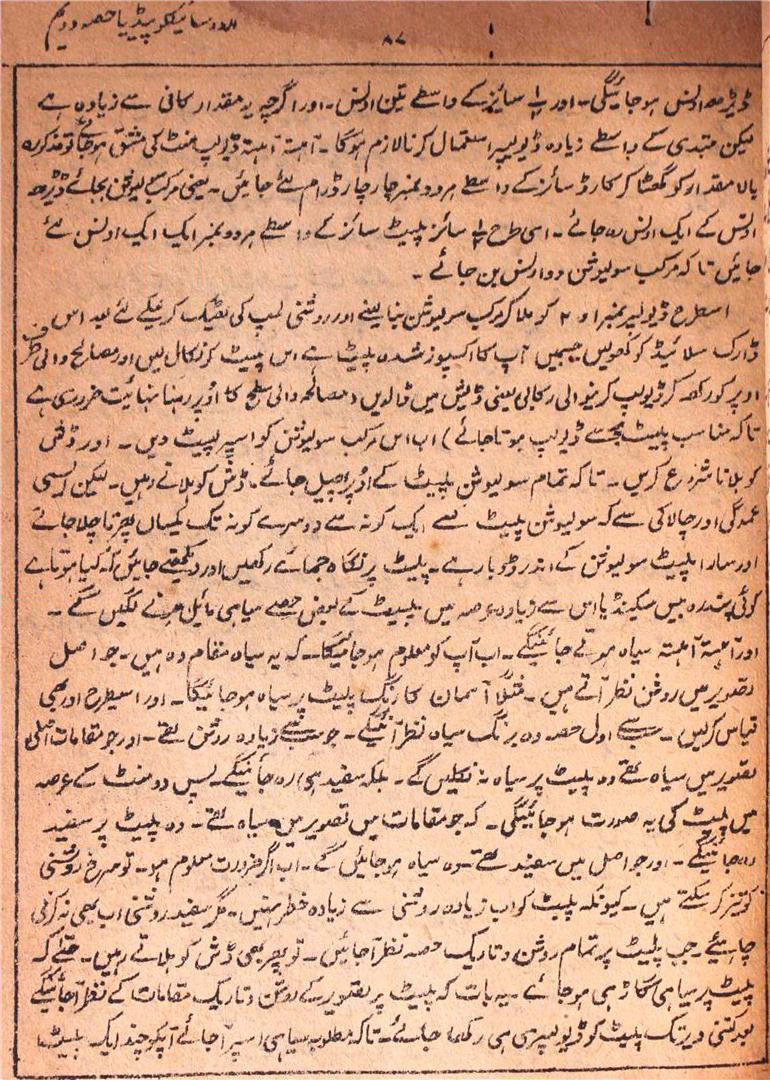 ۸۷
ہندوسائیکلوپیڈیا حصہ دوم
ڈیڑھ اونس ہوجائیگی۔ اور ½ سائیز کے واسطے تین اونس۔ اور اگرچہ یہ مقدار کافی سے زیادہ ہے
لیکن مبتدی کے واسطے زیادہ ڈیولیپر استعمال کرنا لازم ہوگا۔ آہستہ آہستہ ڈیولپ منٹ کی مشق ہوجائے تو مذکورہ
بالا مقدار کو گھٹا کر کارڈ سائز کے واسطے ہر دو نمبر چار چار ڈرام لئے جائیں۔ یعنی مرکب سلیوشن بجائے ڈیڑھ
اونس کے ایک اونس رہ جائے۔ اسی طرح ½ سائز پلیٹ سائز کے واسطے ہر دو نمبر ایک ایک اونس لئے
جائیں تاکہ مرکب سولیوشن دو اونس بن جائے۔
اسطرح ڈیولیپر نمبر ۱ و ۲ کو ملا کر مرکب سولیوشن بنا لینے اور روشنی لمپ کی ٹھیک کر چکنے کے بعد اس
ڈارک سلائیڈ کو کھولیں جسمیں آپ کا اکسپوز شدہ پلیٹ ہے اس پلیٹ کو نکال لیں اور مصالح والی طرف
اوپر کو رکھ کر ڈیولپ کرنیوالی رکابی یعنی ڈیش میں ڈالدیں (مصالحہ والی سطح کا اوپر رہنا نہایت ضروری ہے
تاکہ مناسب پلیٹ بجسے ڈیولپ ہوتا جائے) اب اس مرکب سولیوشن کو اسپر پلیٹ دیں۔ اور ڈش
کو ہلانا شروع کریں۔ تاکہ تمام سولیوشن پلیٹ کے اوپر پھیل جائے۔ ڈش کو ہلاتے رہیں۔ لیکن ایسی
عمدگی اور چالاکی سے کہ سولیوشن پلیٹ کے ایک کونہ سے دوسرے کونہ تک یکساں پھرتا چلا جائے
اور سارا پلیٹ سولیوشن کے اندر ڈوبا رہے۔ پلیٹ پر نگاہ جمائے رکھیں اور دیکھتے جائیں کہ کیا ہوتا ہے
کوئی پندرہ بیس سیکینڈ یا اس سے زیادہ عرصہ میں پلیٹ کے بعض حصے سیاہی مائل ہونے لگیں گے۔
اور آہستہ آہستہ سیاہ ہوتے جائینگے۔ اب آپ کو معلوم ہوجائیگا۔ کہ یہ سیاہ مقام وہ ہیں۔ جو اصل
تصویر میں روشن نظر آتے ہیں۔ مثلاً آسمان کا رنگ پلیٹ پر سیاہ ہوجائیگا۔ اور اسیطرح اور بھی
قیاس کرلیں۔ سب سے اول حصہ وہ برنگ سیاہ نظر آئینگے۔ جو سب سے زیادہ روشن تھے۔ اور جو مقامات اصلی
تصویر میں سیاہ تھے وہ پلیٹ پر سیاہ نہ نکلیں گے۔ بلکہ سفید ہی رہ جائینگے۔ پس دو منٹ کے عرصہ
میں پلیٹ کی یہ صورت ہوجائیگی۔ کہ جو مقامات میں تصویر میں سیاہ تھے۔ وہ پلیٹ پر سفید
رہ جائینگے۔ اور جو اصل میں سفید تھے۔ وہ سیاہ ہوجائیں گے۔ اب اگر ضرورت معلوم ہو۔ تو سرخ روشنی
کو تیز کرسکتے ہیں۔ کیونکہ پلیٹ کو اب زیادہ روشنی سے زیادہ خطر نہیں۔ مگر سفید روشنی اب بھی نہ کرنی
چاہیئے۔ جب پلیٹ پر تمام روشن و تاریک حصہ نظر آجائیں۔ تو پھر بھی ڈش کو ہلاتے رہیں۔ حتےٰ کہ
پلیٹ پر سیاہی گاڑہی ہوجائے۔ یہ بات کہ پلیٹ پر تصویر کے روشن و تاریک مقامات کے نظر آجائینگے
بعد کتنی دیر تک پلیٹ کو ڈیولیپر ہی میں رکھا جائے۔ تاکہ مطلوبہ سیاہی اسپر آجائے آپکو چند ایک پلیٹ